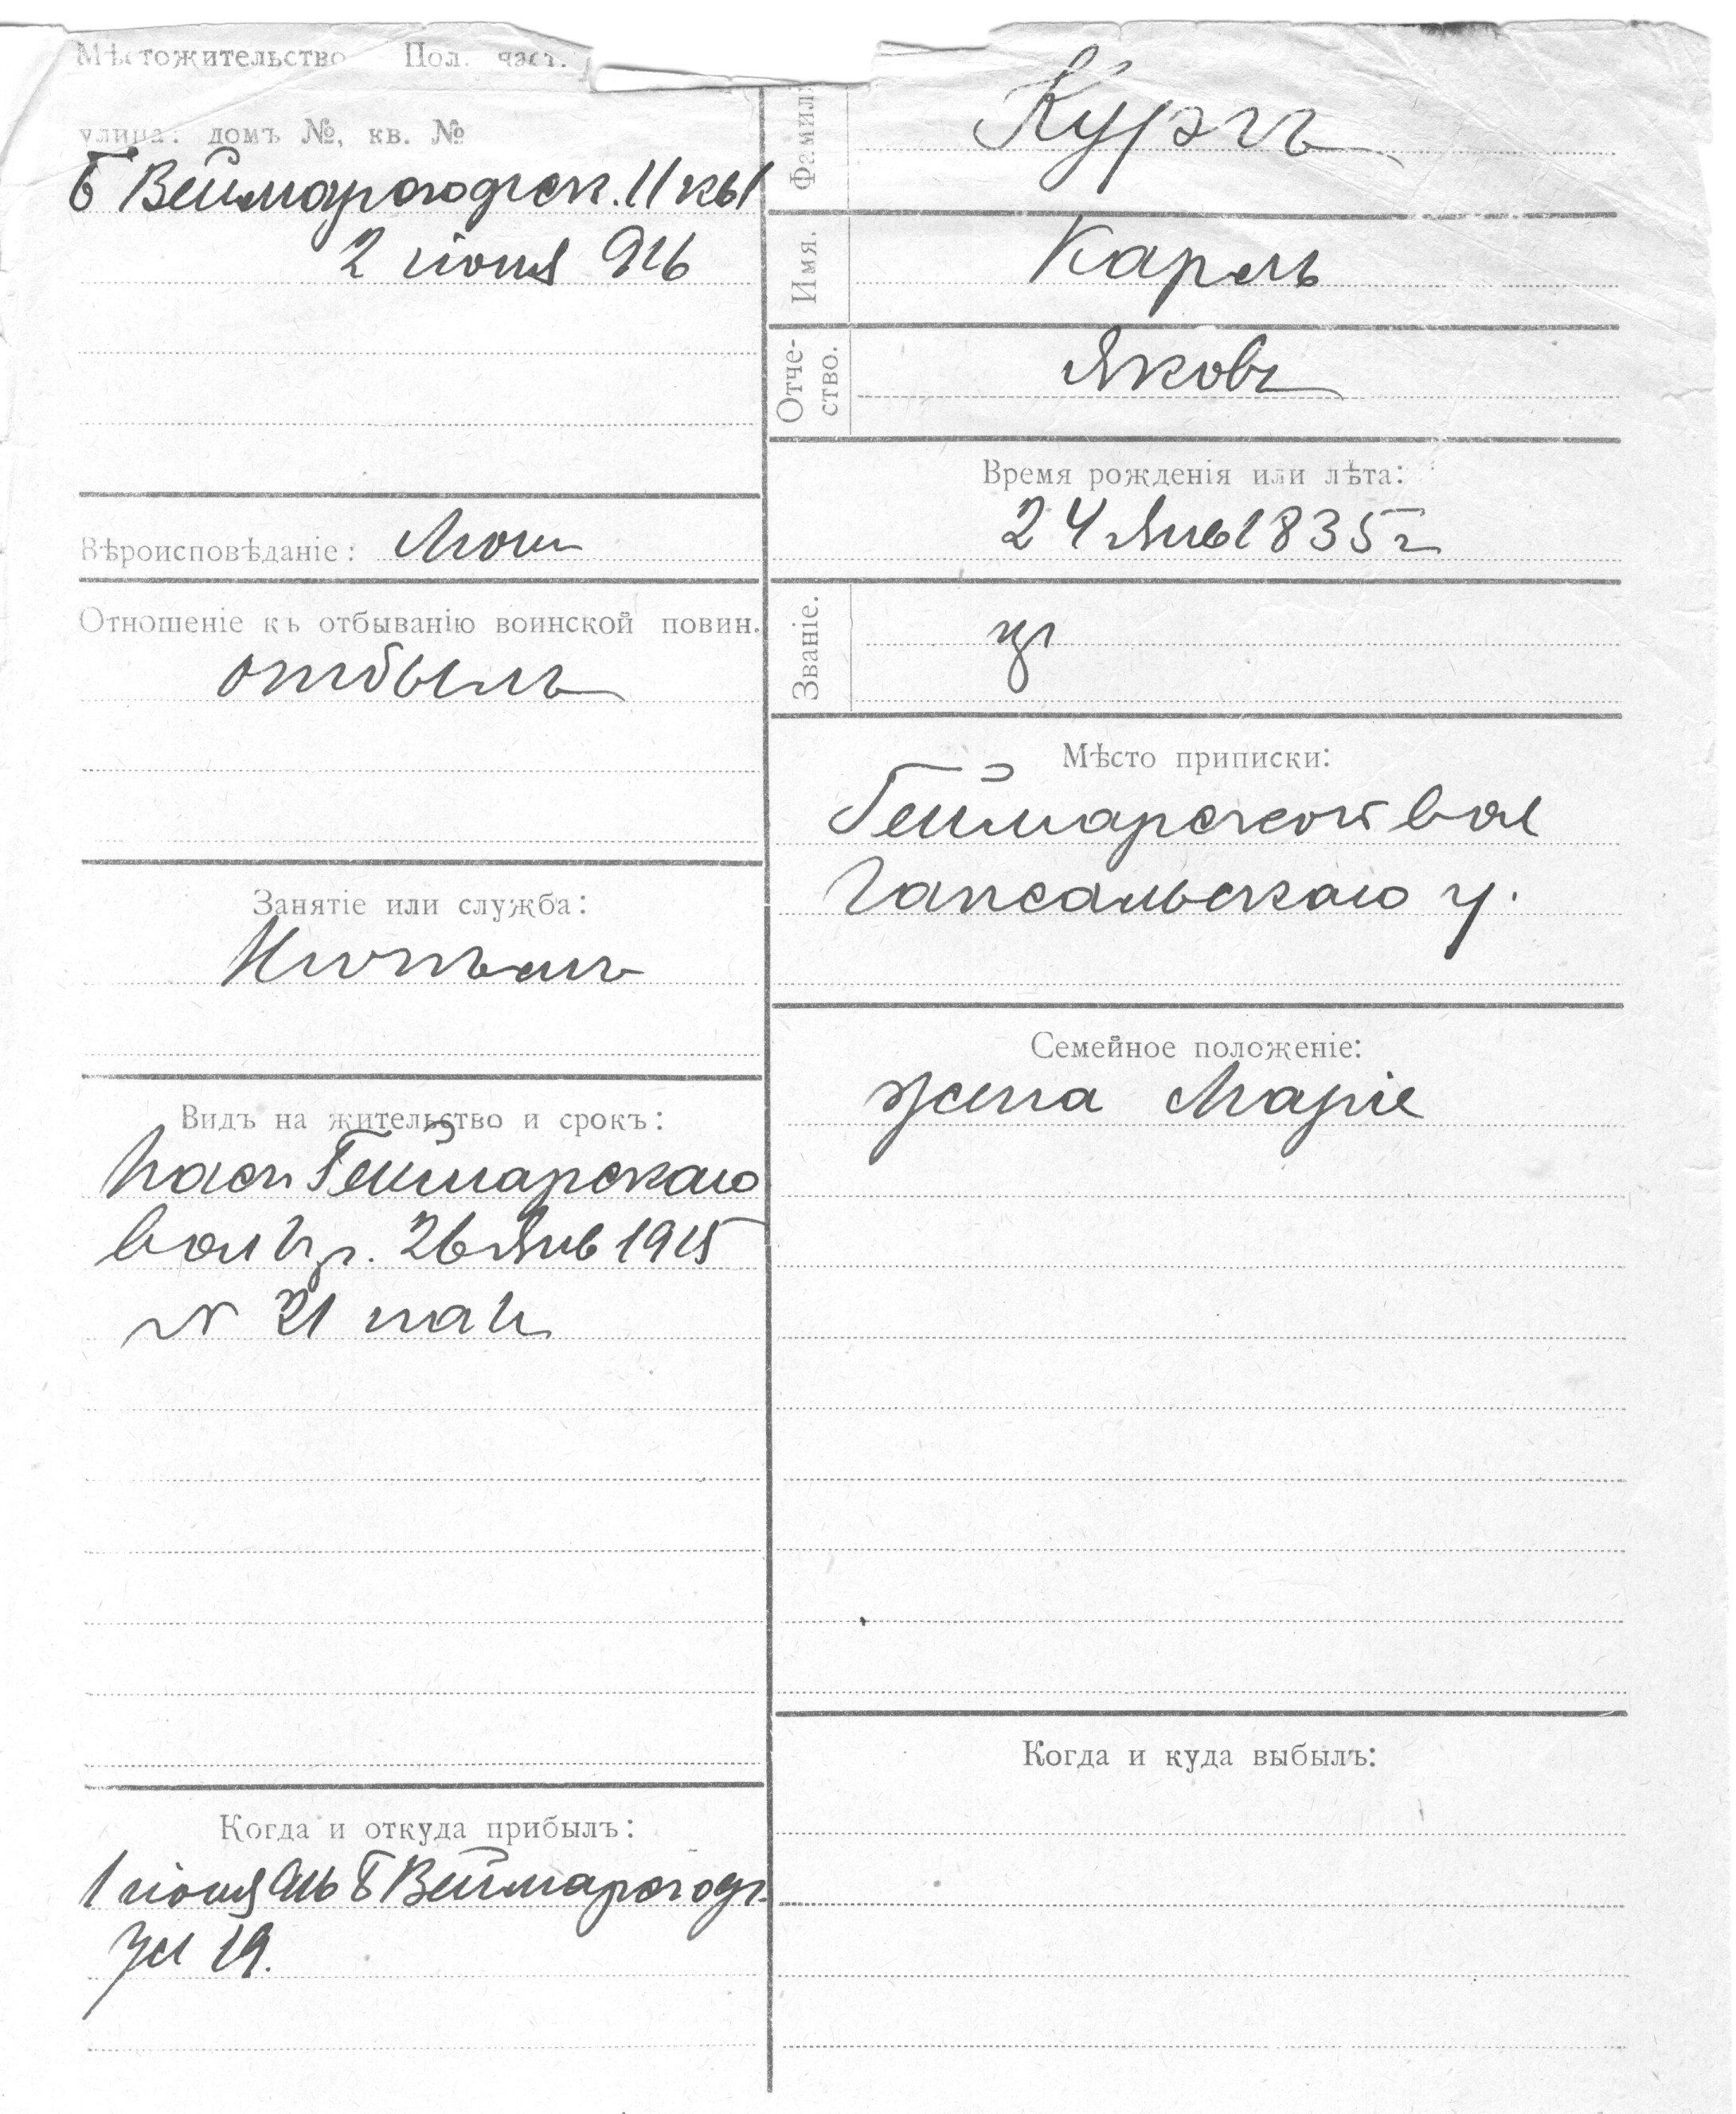 Мѣстожительство Пол. част.
улица: домъ №, кв. №
Б Веймар 11 кв 1
2 іюня 916
Вѣроисповѣданіе: Лют
Отношеніе къ отбыванію воинской повин.
отбылъ
Занятіе или служба:
Видъ на жительство и срокъ:
Пасп Геймарскаго
вол Пр. 26 Янв 1915
№ 21
Когда и откуда прибылъ:
1 іюня 916 Б Веймар
19.
Фамилі
Куръ
Имя.
Карлъ
Отче-
ство.
Яковъ
Время рожденія или лѣта:
24 Янв 1835 г
Званіе.
кр
Мѣсто приписки:
Геймарской вол
Гапсальскаго у.
Семейное положеніе:
жена Маріе
Когда и куда выбылъ: